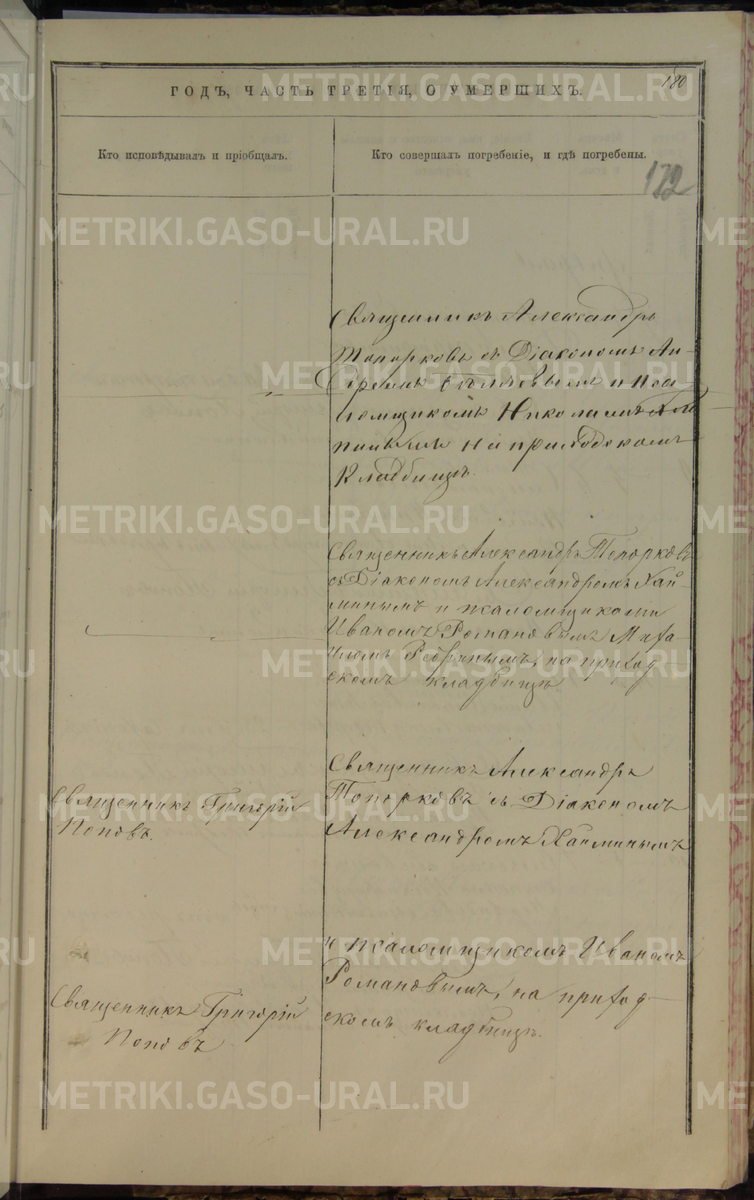 180
ГОДЪ, ЧАСТЬ ТРЕТІЯ, О УМЕРШИХЪ.
Кто исповѣдывалъ и пріобщалъ.
Кто совершалъ погребеніе, и гдѣ погребены.
172
Священникъ Александръ
Топорковъ съ Діакономъ Ан-
и Пса-
ломщикомъ Николаемъ
на приходскомъ
Кладбищѣ.
Священникъ Александръ Топорковъ
съ Діакономъ Александромъ Хай-
минымъ и псаломщиками
Иваномъ Романовымъ Миха-
иломъ на приход-
скомъ кладбищѣ
Священникъ Григорій
Поповъ.
Священникъ Александръ
Топорковъ съ Діакономъ
Александромъ Хайминымъ
и псаломщикомъ Иваномъ
Романовымъ, на приход-
скомъ кладбищѣ.
Священникъ Григорій
Поповъ
METRIKI.GASO-URAL.RU